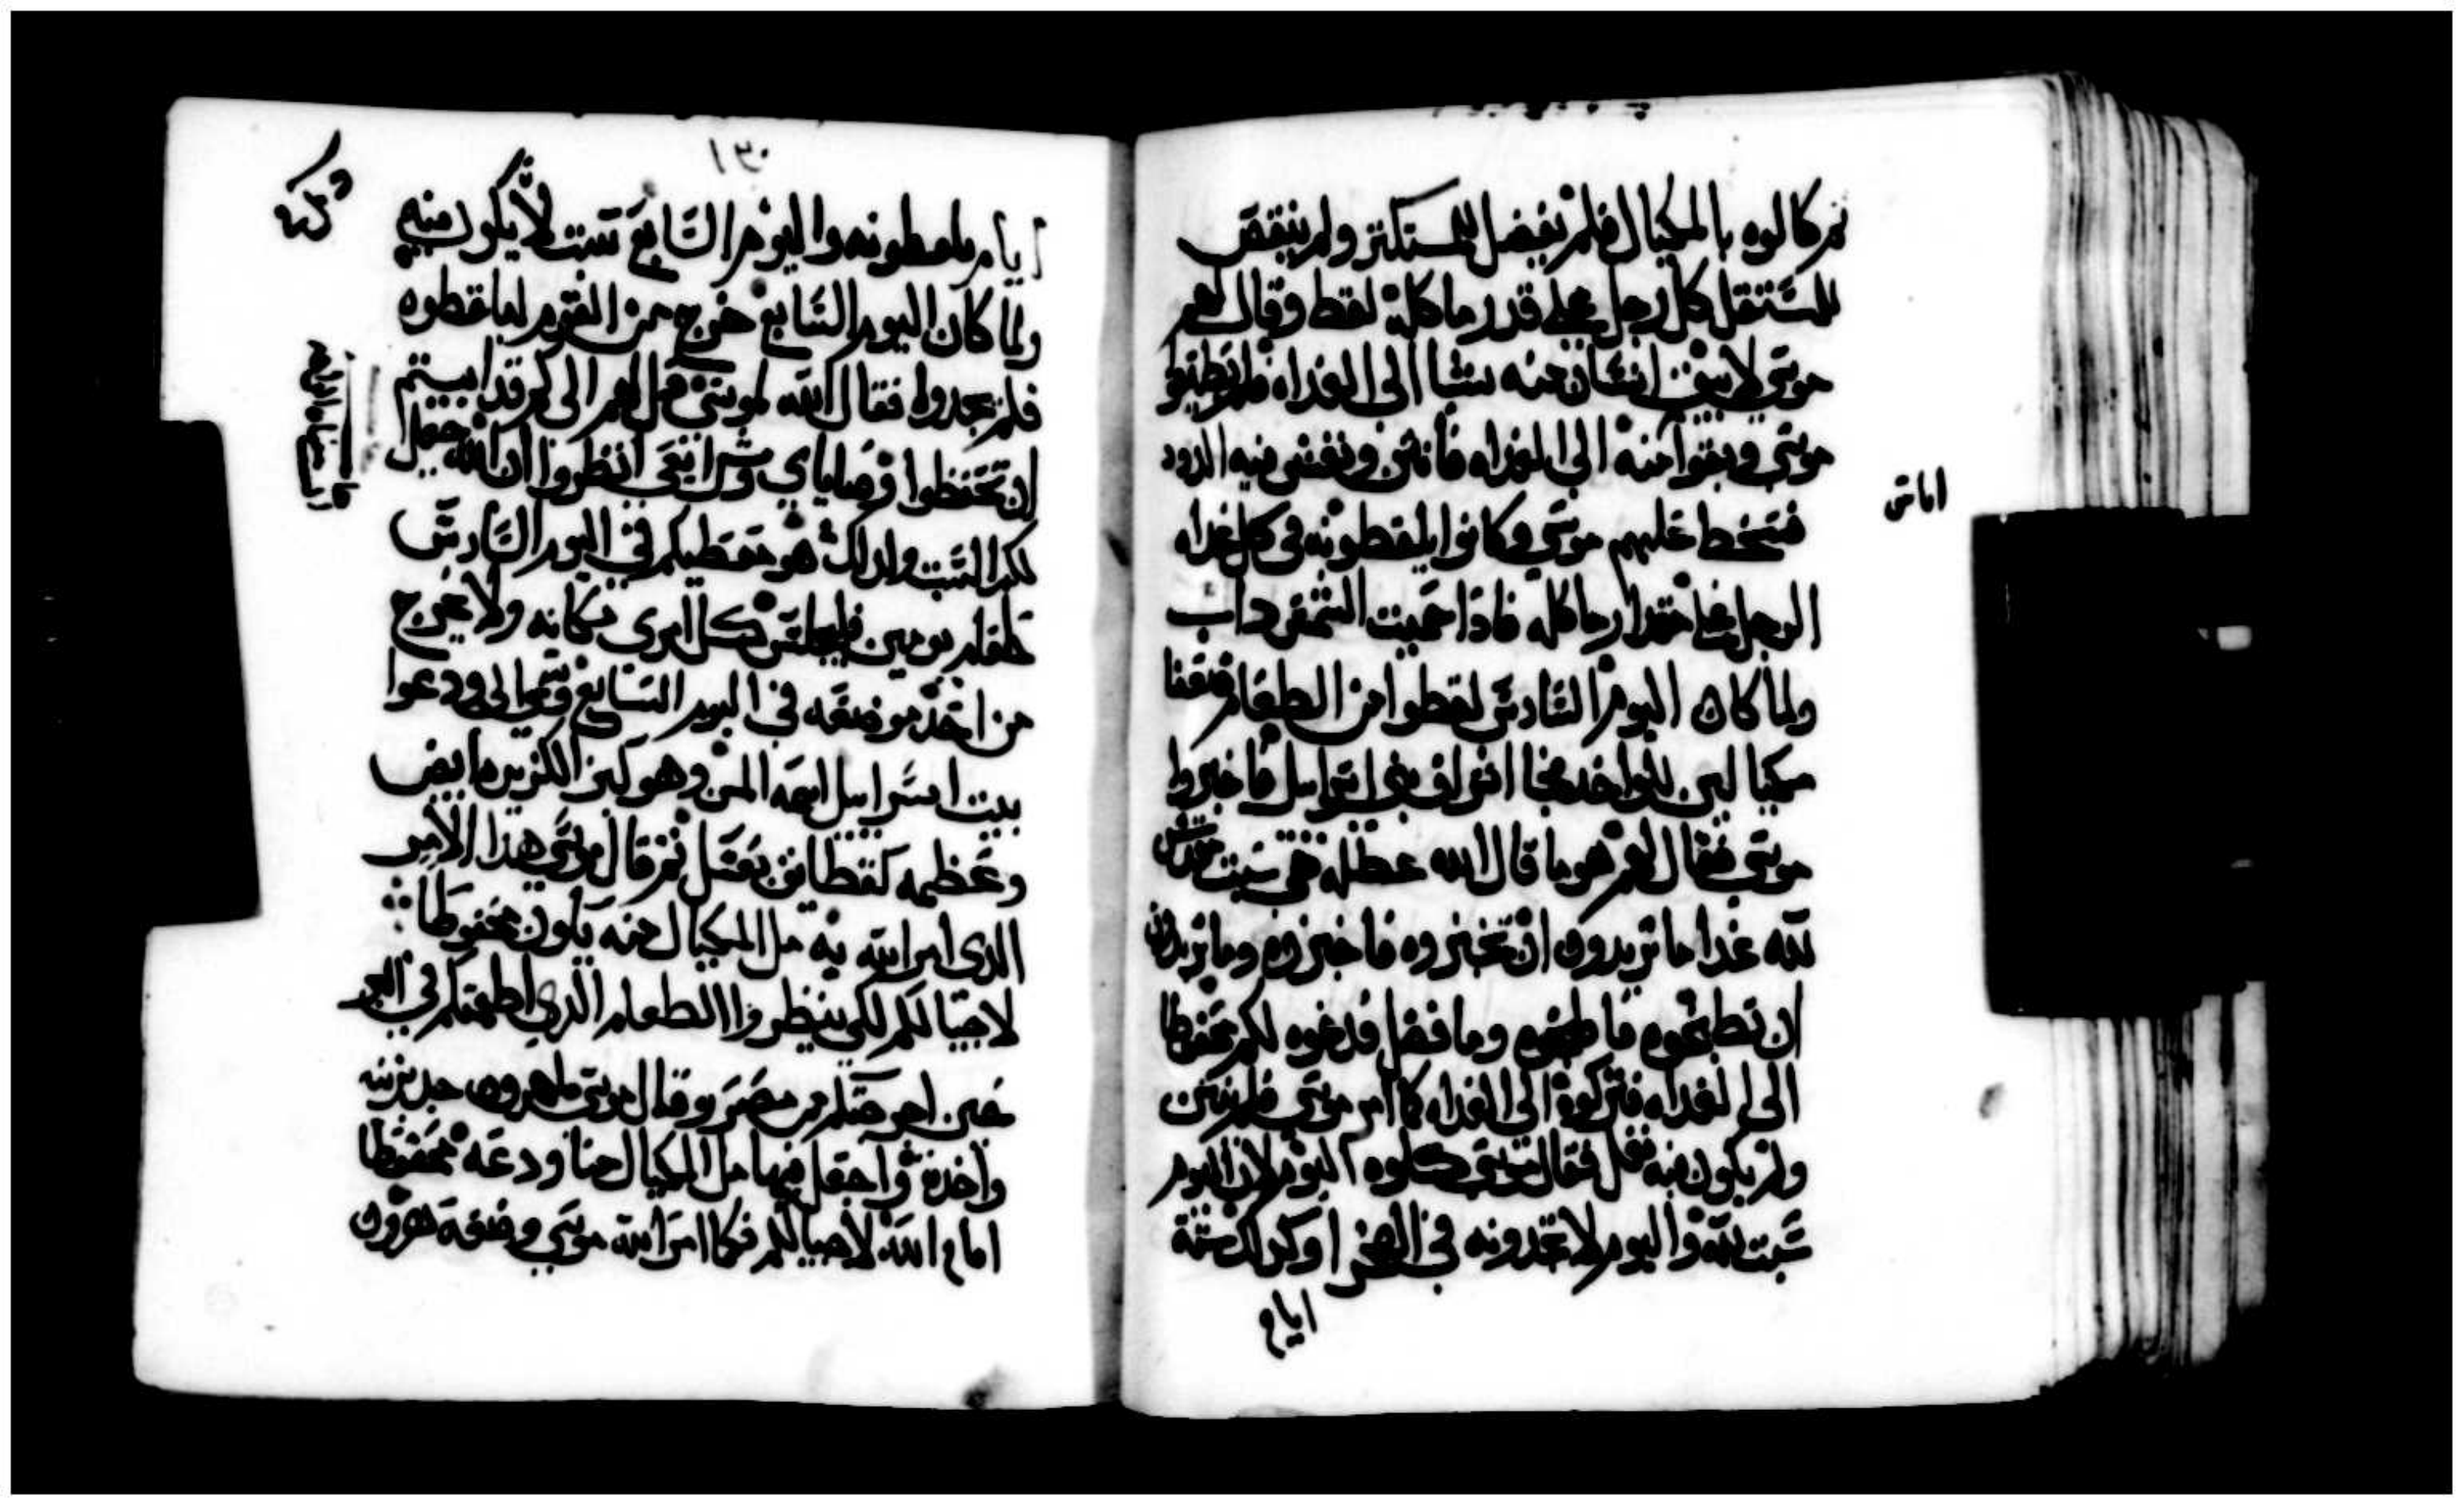 ثم كالوه بالمكيال فلم يفضل للمستكثر ولم ينقص
للمستقل كل رجل على قدر ماكله لقط وقال لهم
موسى لا يبقى انسان منه شيا الى الغداه فلم يطيعوا
موسى وبقوا منه الى الغداه فانتن وتفشى فيه الدود
فسخط عليهم موسى وكانوا يلقطونه فى كل غداه
اماش
الرجل على مقدار ماكله فاذا حميت الشمس داب
ولما كان اليوم السادس لقطوا من الطعام ضعفا
مكيالين للواحد فجا اشراف بنى اسرايل فاخبروا
موسى فقال لهم هو ما قال الله عطله هى سبت مقدس
لله غدا ما تريدون ان تخبزوه فاخبزوه وما تريدون
ان تطبخوه فاطبخوه وما فضل فدعوه لكم محفوظا
الى الغداه فتركوه الى الغداه كما امر موسى فلم ينتن
ولم يكون فيه فقال موسى كلوه اليوم لان اليوم
سبت لله واليوم لا تجدونه فى الصحرا وكدلك ستة
ايام
١٣٠
ايام تلقطونه واليوم السابع سبت لا يكون فيه
ولما كان اليوم السابع خرج من القوم ليلقطوه
فلم يجدوا فقال الله لموسى قل لهم الى كم قد ابيتم
ان تحفظوا وصاياي وشرايعى انظروا ان الله جعل
لكم السبت ولدلك هو معطيكم فى اليوم السادس
طعام يومين فليجلس كل امرى مكانه ولا يخرج
من احد موضعه فى اليوم السابع ودعوا
بيت اسرايل اسمه المن وهو كبزر الكزبره ابيض
وطعمه كقطايف بعسل ثم قال موسى هدا الامر
الدى امر الله به مل المكيال منه يكون محفوظا
لاجيالكم لكى ينظروا الطعام الدى اطعمتكم فى البر
حين اخرجتكم من مصر وقال موسى لهرون خد بزنيه
واحده واجعل فيها مل المكيال منا ودعه محفوظا
امام الله لاجيالكم فكما امر الله موسى وضعه هرون